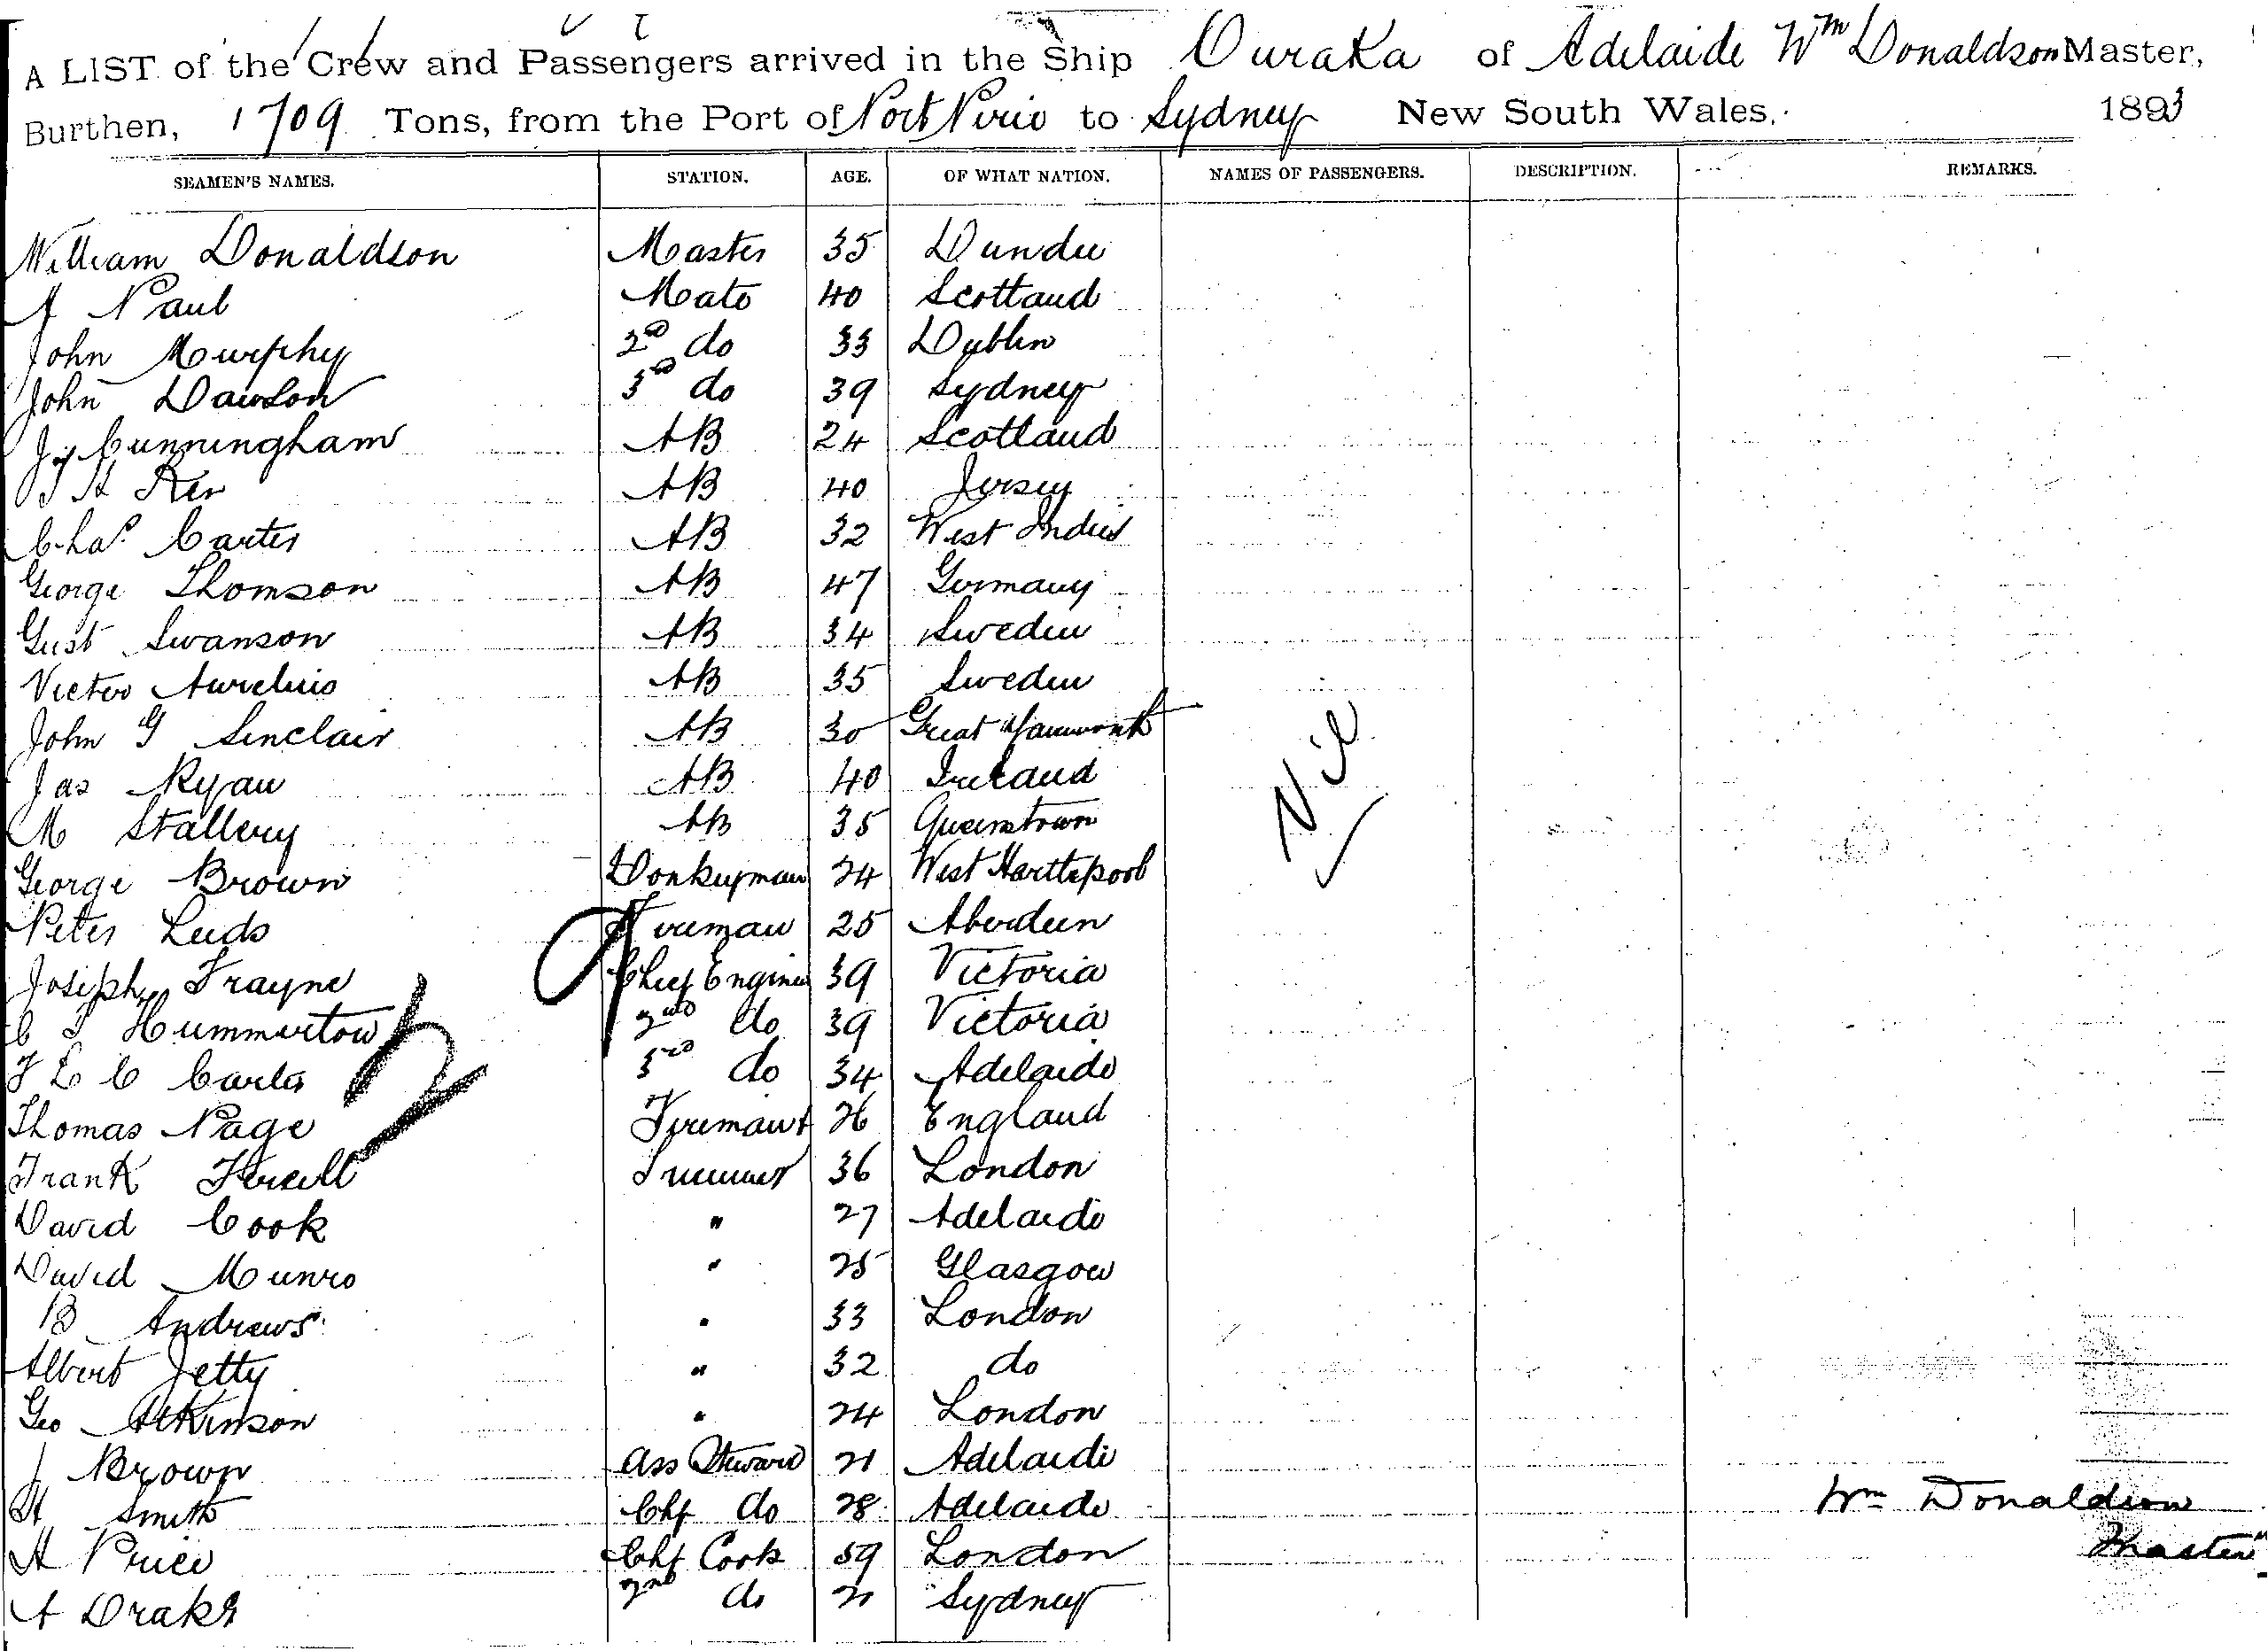 A LIST of the Crew and Passengers arrived in the Ship Ouraka of Adelaide Wm Donaldson Master,
Burthen, 1709 Tons, from the Port of Port Pirie to Sydney New South Wales, 1893
SEAMEN'S NAMES. STATION. AGE. OF WHAT NATION. NAMES OF PASSENGERS. DESCRIPTION. REMARKS.
William Donaldson Master 35 Dundee
A Paul Mate 40 Scotland
John Murphy 2nd do 33 Dublin
John Dawson 3rd do 39 Sydney
Jas Cunningham AB 24 Scotland
J H Ker AB 40 Jersey
Chas Carter AB 32 West Indies
George Thomson AB 47 Germany
Gust Swanson AB 34 Sweden
Victor Aurelius AB 35 Sweden
John G Sinclair AB 30 Great Yarmouth
Jas Ryan AB 40 Ireland
M Stallery AB 35 Queenstown
Nil
George Brown Donkeyman 24 West Hartlepool
Peter Leeds Fireman 25 Aberdeen
Joseph Trayne Chief Engineer 39 Victoria
C T Hummerton 2nd do 39 Victoria
F L C Carter 3rd do 34 Adelaide
Thomas Page Firemant 26 England
Frank Trimmer 36 London
David Cook " 27 Adelaide
David Munro " 25 Glasgow
B Andrews " 33 London
Albert Jetty " 32 do
Geo Atkinson " 24 London
J Brown Ass Steward 21 Adelaide
H Smith Chf do 28 Adelaide
Wm Donaldson
H Price Chf Cook 59 London
Master
A Drake 2nd do 21 Sydney